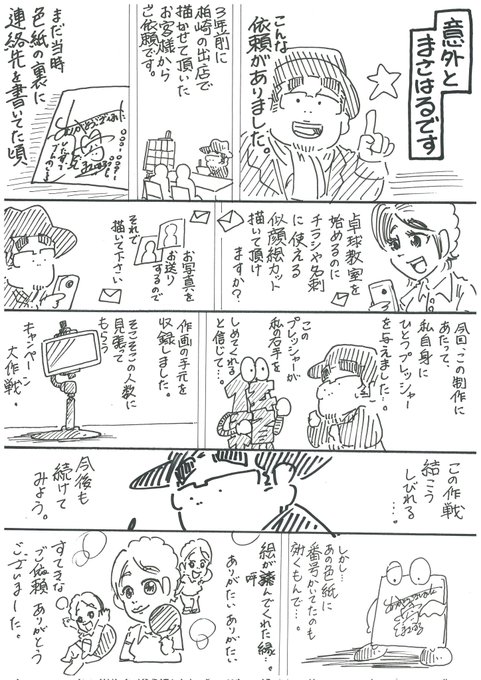 意外と
まさはるです
こんな
依頼がありました。
3年前に
柏崎の出店で
描かせて頂いた
お客様から
ご依頼です。
まだ当時
色紙の裏に
連絡先を書いてた頃
卓球教室を
始めるのに
チラシや名刺
に使える
似顔絵カット
描いて頂け
ますか?
お写真を
お送り
するので
それで
描いて下さい
今回、この制作に
あたって、
私自身に
ひとつプレッシャー
を与えました…。
この
プレッシャーが
私の右手を
しめてくれる
と信じて…。
作画の手元を
収録しました。
そこそこの人数に
見張って
もらう
キャンペーン
大作戦。
この作戦
結こう
しびれる
…。
今後も
続けて
みよう。
しかし…
あの色紙に
番号かいてたのも
効くもんで…。
絵が
呼んでくれた縁…。
ありがたい ありがたい
すてきな
ご依頼 ありがとう
ございました。